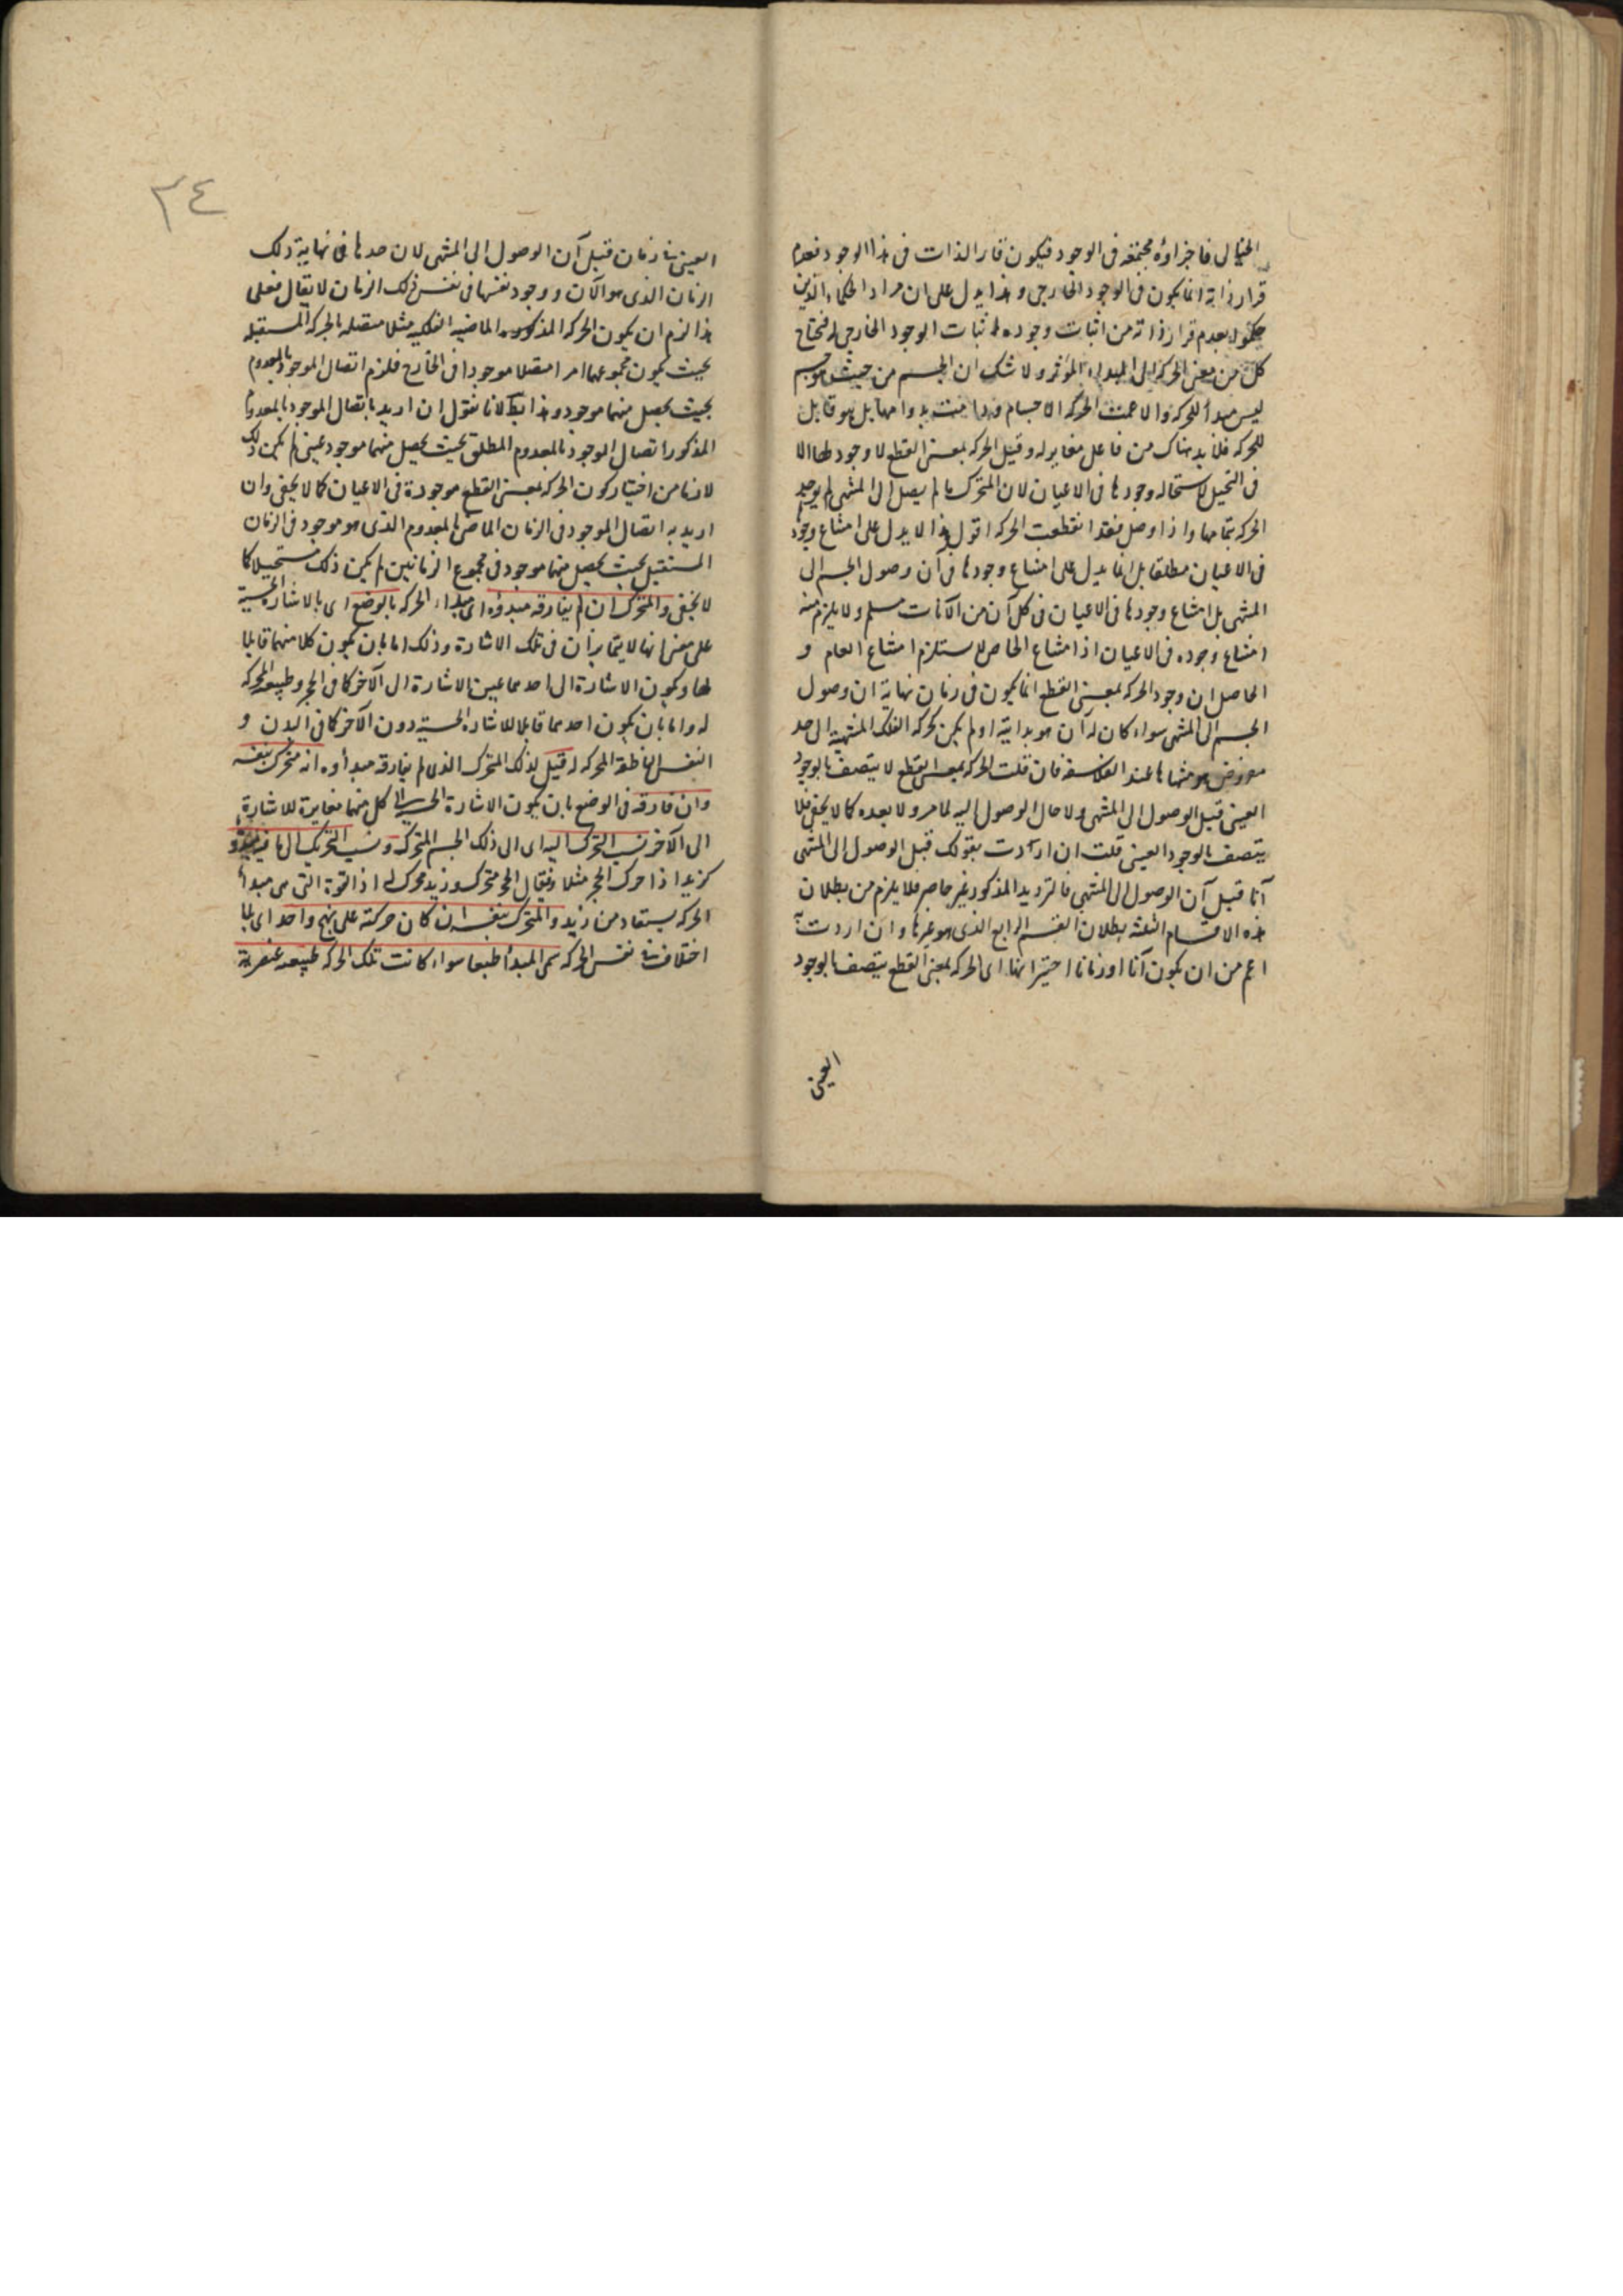 الخيالى فاجزاؤه مجتمعة فى الوجود فيكون قار الذات فى هذا الوجود فعدم
قرار ذاته انما يكون فى الوجود الخارجى وهذا يدل على ان مراد الحكماء الذين
حكموا بعدم قرار ذاته من اثبات وجوده اثبات الوجود الخارجى له فيحتاج
كل من معنى الحركة الى المبداء المؤثر ولا شك ان الجسم من حيث هو جسم
ليس مبدأ للحركة والا عمت الحركة الاجسام ودامت بدوامها بل هو قابل
للحركة فلا بد هناك من فاعل مغاير له وقيل الحركة بمعنى القطع لا وجود لها الا
فى التخيل لاستحالة وجودها فى الاعيان لان المتحرك ما لم يصل الى المنتهى لم يوجد
الحركة بتمامها واذا وصل فقد انقطعت الحركة اقول هذا لا يدل على امتناع وجودها
فى الاعيان مطلقا بل انما يدل على امتناع وجودها فى آن وصول الجسم الى
المنتهى بل امتناع وجودها فى الاعيان فى كل آن من الآنات مسلم ولا يلزم منه
امتناع وجوده فى الاعيان اذ امتناع الخاص لا يستلزم امتناع العام و
الحاصل ان وجود الحركة بمعنى القطع انما يكون فى زمان نهاية ان وصول
الجسم الى المنتهى سواء كان له آن هو بدايته او لم يكن كحركة الفلك المنتهية الى حد
مفروض هو منتهاها عند الفلاسفة فان قلت الحركة بمعنى القطع لا يتصف بالوجود
العينى قبل الوصول الى المنتهى ولا حال الوصول اليه لما مر ولا بعده كما لا يخفى فلا
يتصف بالوجود العينى قلت ان اردت بقولك قبل الوصول الى المنتهى
آنا قبل آن الوصول الى المنتهى فالترديد المذكور غير حاصر فلا يلزم من بطلان
هذه الاقسام الثلثة بطلان القسم الرابع الذى هو غيرها وان اردت به
اعم من ان يكون آنا او زمانا اختير انها اى الحركة بمعنى القطع يتصف بالوجود
العينى
٣٤
العينى فى زمان قبل آن الوصول الى المنتهى لان حدها فى نهاية ذلك
الزمان الذى هو الآن ووجود نفسها فى نفس ذلك الزمان لا يقال فعلى
هذا لزم ان يكون الحركة المذكورة الماضية الفلكية مثلا متصلة بالحركة المستقبلة
بحيث يكون مجموعهما امرا متصلا موجودا فى الخارج فلزم اتصال الموجود بالمعدوم
بحيث يحصل منهما موجود وهذا بط لانا نقول ان اريد باتصال الموجود بالمعدوم
المذكور اتصال الموجود بالمعدوم المطلق بحيث يحصل منهما موجود عينى لم يكن ذلك
لازما من اختيار كون الحركة بمعنى القطع موجودة فى الاعيان كما لا يخفى وان
اريد به اتصال الموجود فى الزمان الماضى بالمعدوم الذى هو موجود فى الزمان
المستقبل بحيث يحصل منهما موجود فى مجموع الزمانين لم يكن ذلك مستحيلا كما
لا يخفى والمتحرك ان لم يفارقه مبدؤه اى مبداء الحركة بالوضع اى بالاشارة الحسية
على معنى انها لا يتمايزان فى تلك الاشارة وذلك اما بان يكون كلا منهما قابلا
لها ويكون الاشارة الى احدهما عين الاشارة الى الآخر كما فى الحجر وطبيعة المحركة
له واما بان يكون احدهما قابلا للاشارة الحسية دون الآخر كما فى البدن و
النفس الناطقة المحركة له قيل لذلك المتحرك الذى لم يفارقه مبدأوه انه متحرك بنفسه
وان فارقه فى الوضع بان يكون الاشارة الحسية الى كل منهما مغايرة للاشارة
الى الآخر نسب التحرك اليه اى الى ذلك الجسم المتحرك ونسب التحريك الى ما فيه
كزيد اذا حرك الحجر مثلا فيقال الحجر متحرك وزيد محرك له اذ القوة التى هى مبدأ
الحركة يستفاد من زيد والمتحرك بنفسه ان كان حركته على نهج واحد اى بلا
اختلاف فى نفس الحركة سمى المبدأ طبعا سواء كانت تلك الحركة طبيعة عنصرية